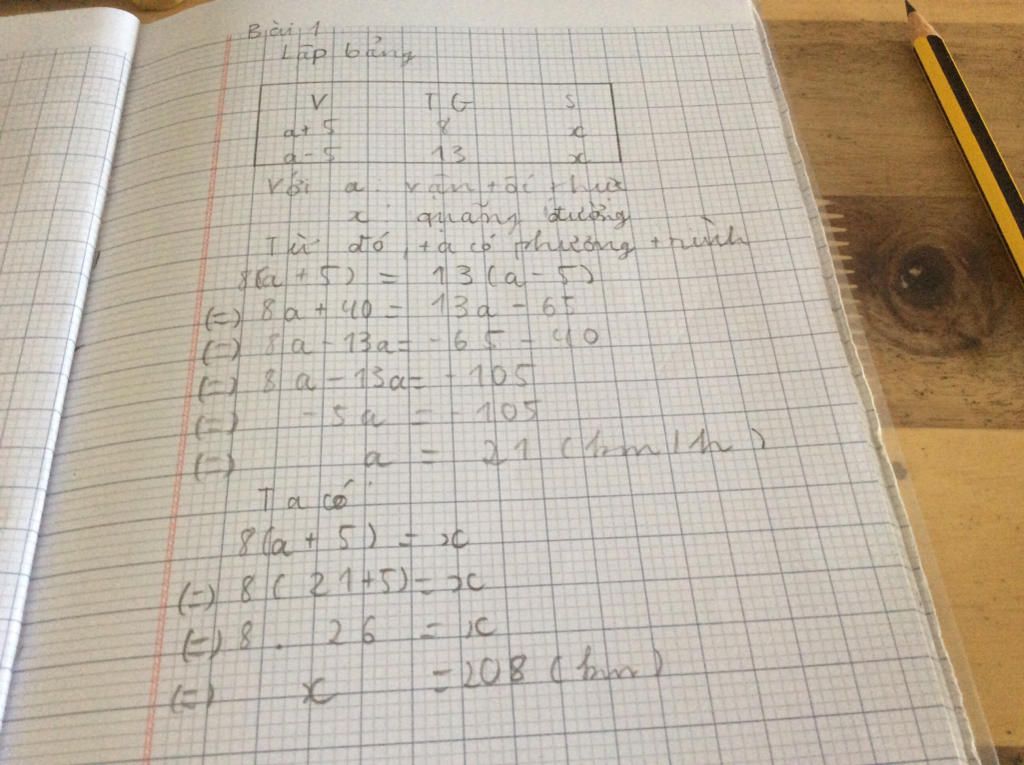 Bài 1
Lập bảng
V TG S
a+5 8 x
a-5 13 x
Với a: vận tốc thực
x: quãng đường
Từ đó, ta có phương trình
8(a+5) = 13(a-5)
(=) 8a+40 = 13a-65
(=) 8a-13a= -65-40
(=) 8a-13a= -105
(=) -5a = -105
(=) a = 21 (km/h)
Ta có:
8(a+5) = x
(=) 8(21+5)=x
(=) 8 . 26 = x
(=) x =208 (km)